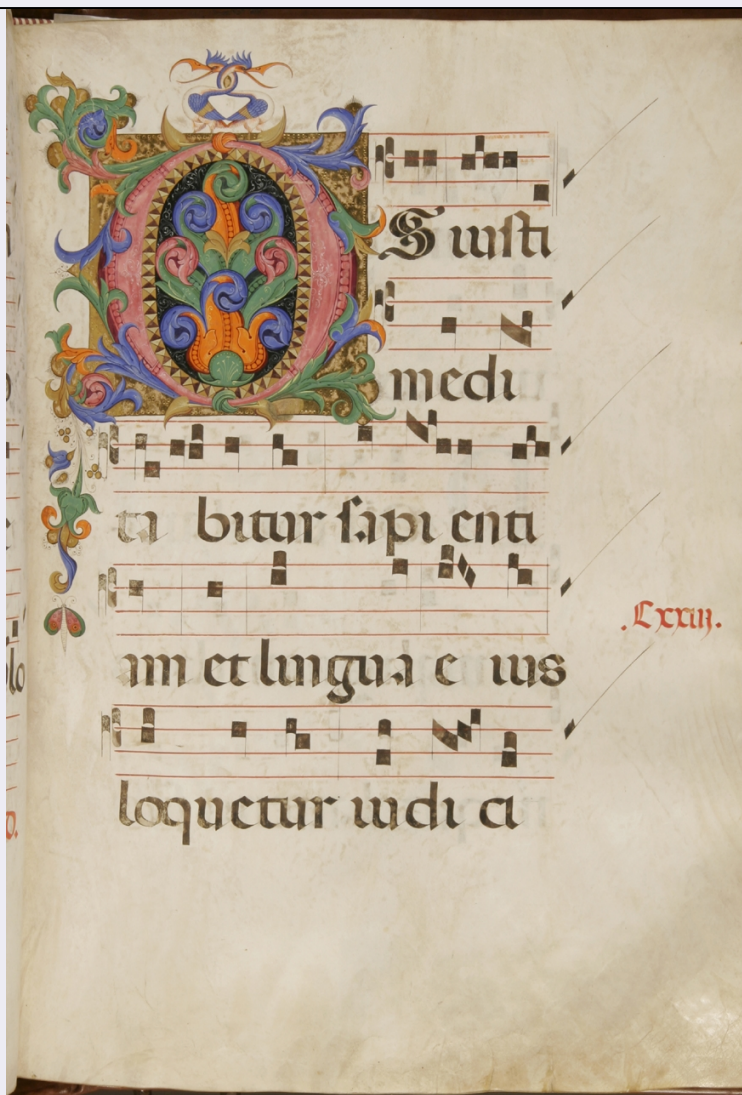 OS iusti
medi
ta bitur sapi enti
am et lingua e ius
.Lxxiii.
loquetur iudi ci